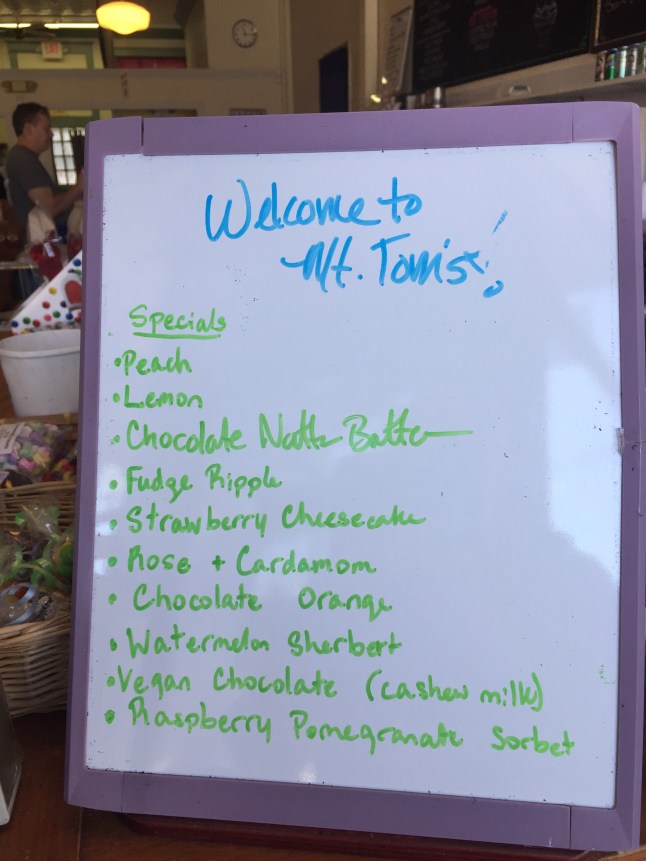 Welcome to
Mt. Tom's!
Specials
• Peach
• Lemon
• Chocolate Nutter Butter
• Fudge Ripple
• Strawberry Cheesecake
• Rose + Cardamom
• Chocolate Orange
• Watermelon Sherbert
• Vegan Chocolate (cashew milk)
• Raspberry Pomegranate Sorbet